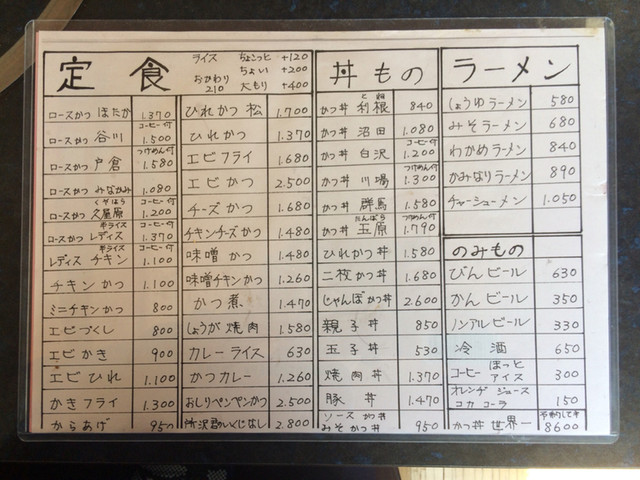 定食
ライス ちょこっと +120
ちょい +200
おかわり 210 大もり +400
ロースかつ ほたか 1.370
コーヒー付
ロースかつ 谷川 1.500
つけめん付
ロースかつ 戸倉 1.580
ロースかつ みなかみ 1.080
くずはら コーヒー付
ロースかつ 久屋原 1.200
半ライス コーヒー付
ロースかつ レディス 1.370
半ライス コーヒー付
レディス チキン 1.100
チキンかつ 1.100
ミニチキンかつ 800
エビづくし 800
エビかき 900
エビひれ 1.100
かきフライ 1.300
からあげ 950
ひれかつ 松 1.700
ひれかつ 1.370
エビフライ 1.680
エビかつ 2.500
チーズかつ 1.680
チキンチーズかつ 1.480
味噌かつ 1.480
味噌チキンかつ 1.260
かつ煮 1.470
しょうが焼肉 1.580
カレーライス 630
かつカレー 1.260
おしりペンペンかつ 2.500
2.800
丼もの
とね
かつ丼 利根 840
かつ丼 沼田 1.080
コーヒー付
かつ丼 白沢 1.200
つけめん付
かつ丼 川場 1.300
かつ丼 群馬 1.580
たんばら つめめん付
かつ丼 玉原 1.790
ひれかつ丼 1.580
二枚かつ丼 1.680
じゃんぼかつ丼 2.600
親子丼 850
玉子丼 530
焼肉丼 1.370
豚丼 1.470
ソース かつ丼
みそかつ丼 950
ラーメン
しょうゆラーメン 580
みそラーメン 680
わかめラーメン 840
かみなりラーメン 890
チャーシューメン 1.050
のみもの
びんビール 630
かんビール 350
ノンアルビール 330
冷酒 650
コーヒー ほっと アイス 300
オレンヂ ジュース
コカ コーラ 150
予約して下
かつ丼 世界一 8600